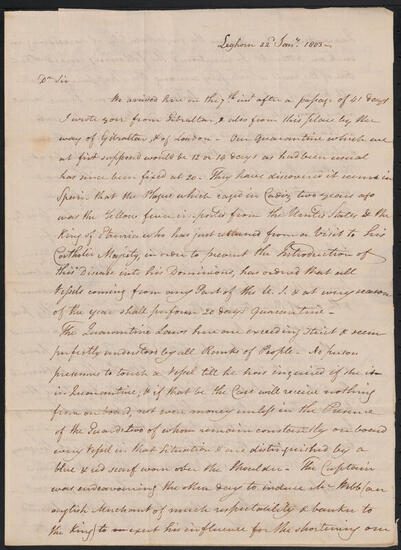 Leghorn 22 Jany. 1803—
Dr Sir
We arrived here on the 7th inst after a passage of 41 days
I wrote you from Gibraltar, & also from this place by the
way of Gibraltar, & of London— Our quarantine which we
at first supposed would be 12 or 14 days as had been usual
has since been fixed at 20— They have discovered it seems in
Spain that the Plague which raged in Cadiz two years ago
was the Yellow fever imported from the United States & the
King of Etruria who has just returned from a Visit to his
Catholic Majesty, in order to prevent the Introduction of
this Disease into his Dominions, has ordered that all
Vessels coming from any Part of the U.S. & at every season
of the year shall perform 20 days Quarantine—
The Quarantine Laws here are exceeding strict & seem
perfectly understood by all Ranks of People— No person
presumes to touch a Vessel till he has inquired if she is
in Quarantine, & if that be the Case will receive nothing
from on board, not even money unless in the Presence
of the Guards two of whom remain constantly on board
every Vessel in that Situation & are distinguished by a
blue & red scarf worn over the Shoulder— The Captain
was endeavouring the other day to induce Mr Webb (an
english Merchant of much respectability & banker to
the King) to exert his influence for the shortening our